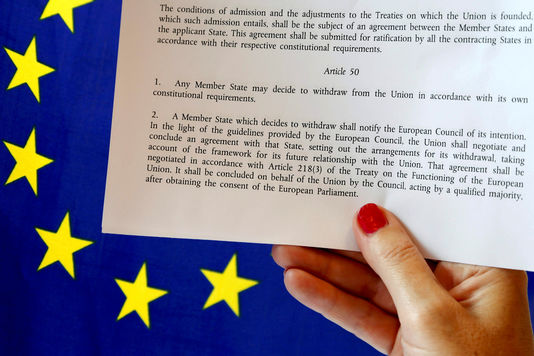 The conditions of admission and the adjustments to the Treaties on which the Union is founded,
which such admission entails, shall be the subject of an agreement between the Member States and
the applicant State. This agreement shall be submitted for ratification by all the contracting States in
accordance with their respective constitutional requirements.
Article 50
1. Any Member State may decide to withdraw from the Union in accordance with its own
constitutional requirements.
2. A Member State which decides to withdraw shall notify the European Council of its intention.
In the light of the guidelines provided by the European Council, the Union shall negotiate and
conclude an agreement with that State, setting out the arrangements for its withdrawal, taking
account of the framework for its future relationship with the Union. That agreement shall be
negotiated in accordance with Article 218(3) of the Treaty on the Functioning of the European
Union. It shall be concluded on behalf of the Union by the Council, acting by a qualified majority,
after obtaining the consent of the European Parliament.